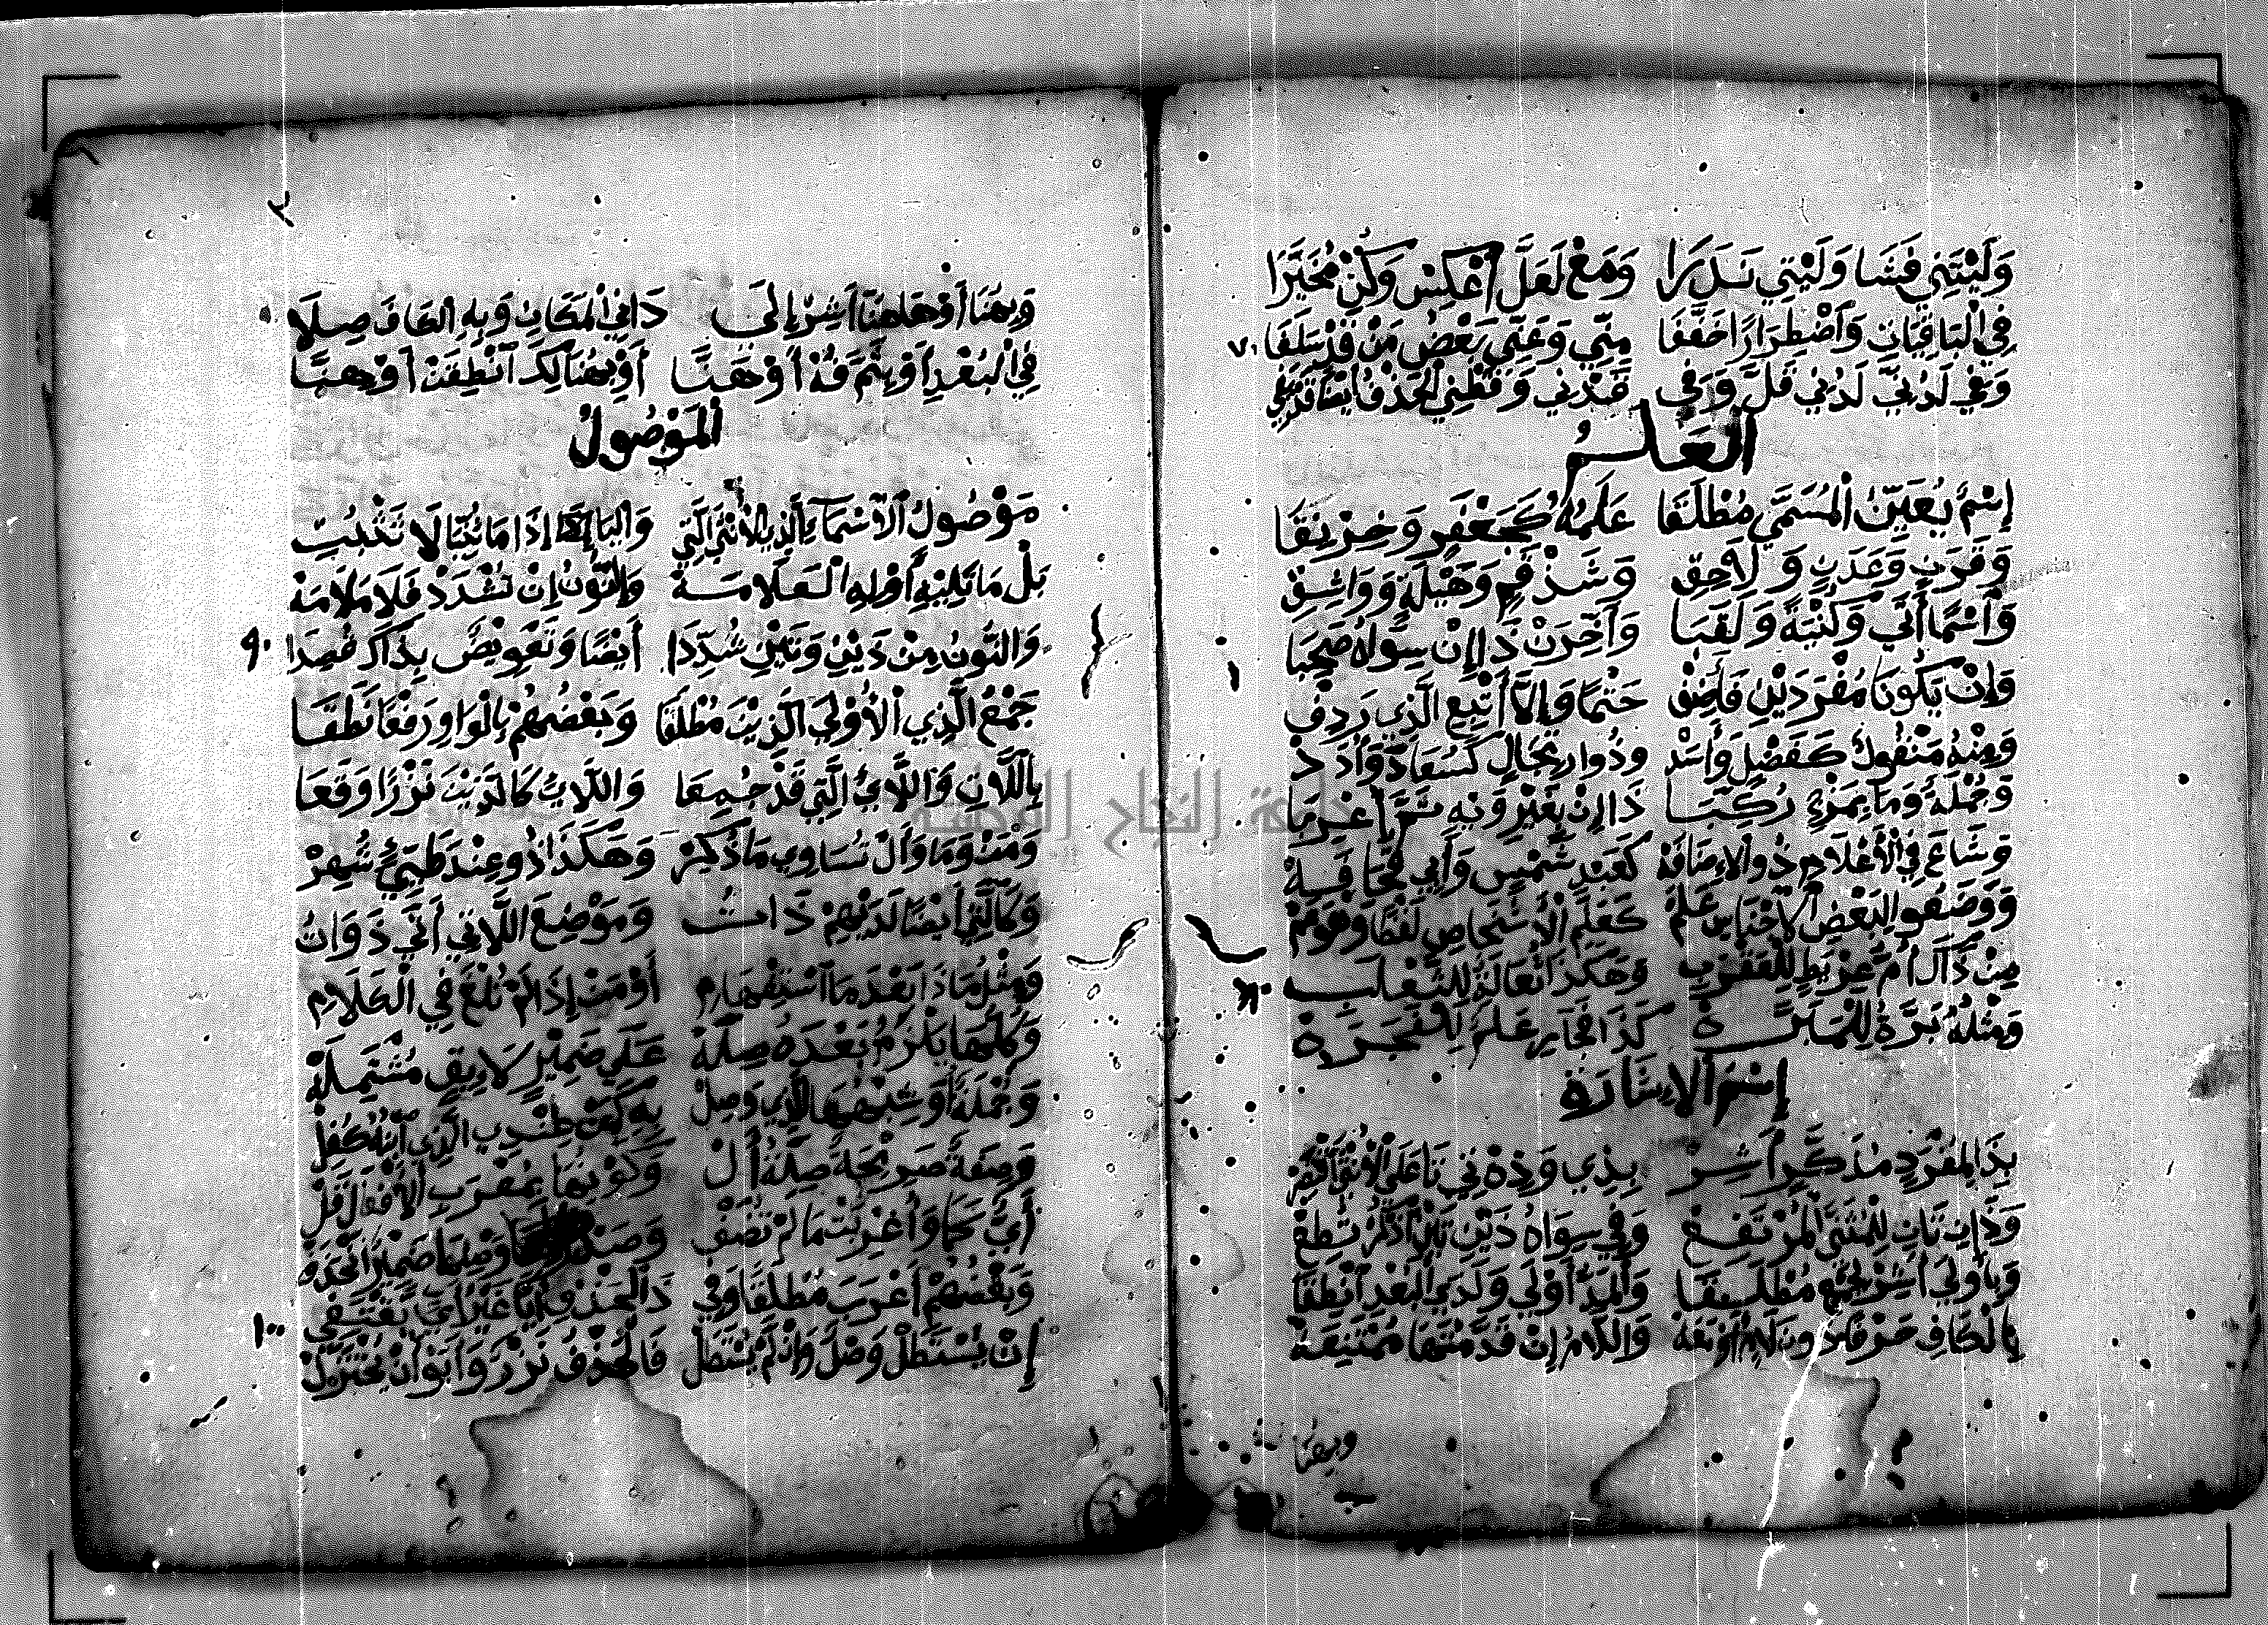 وَلَيْتَنِي فَشَا وَلَيْتِي نَدَرَا وَمَعْ لَعَلَّ اَعْكِسْ وَكُنْ مُخَيَّرَا
فِي الْبَاقِيَاتِ وَاَضْطِرَارًا خَفَّفَا مِنِّي وَعَنِّي بَعْضُ مَنْ قَدْ سَلَفَا
٧٠
وَفِي لَدُنِّي لَدُنِي قَلَّ وَفِي قَدْنِي وَقَطْنِي الْحَذْفُ اَيْضًا قَدْ يَفِي
اَلْعَلَمُ
اِسْمٌ يُعَيِّنُ الْمُسَمَّى مُطْلَقَا عَلَمُهُ كَجَعْفَرٍ وَخِرْنِقَا
وَقَرَنٍ وَعَدَنٍ وَلَاحِقِ وَشَذْقَمٍ وَهَيْلَةٍ وَوَاشِقِ
وَاَسْمًا أَتَى وَكُنْيَةً وَلَقَبَا وَأَخِّرَنْ ذَا إِنْ سِوَاهُ صَحِبَا
وَإِنْ يَكُونَا مُفْرَدَيْنِ فَأَضِفْ حَتْمًا وَإِلَّا أَتْبِعِ الَّذِي رَدِفْ
وَمِنْهُ مَنْقُولٌ كَفَضْلٍ وَأَسَدْ وَذُو ارْتِجَالٍ كَسُعَادَ وَأُدَدْ
وَجُمْلَةٌ وَمَا بِمَزْجٍ رُكِّبَا ذَا إِنْ بِغَيْرِ وَيْهِ تَمَّ أُعْرِبَا
وَشَاعَ فِي الْأَعْلَامِ ذُو الْإِضَافَهْ كَعَبْدِ شَمْسٍ وَأَبِي قُحَافَهْ
وَوَضَعُوا لِبَعْضِ الْأَجْنَاسِ عَلَمْ كَعَلَمِ الْأَشْخَاصِ لَفْظًا وَهُوَ عَمْ
مِنْ ذَاكَ أُمُّ عِرْيَطٍ لِلْعَقْرَبِ وَهَكَذَا ثُعَالَةٌ لِلثَّعْلَبِ
٨٠
وَمِثْلُهُ بَرَّةُ لِلْمَبَرَّهْ كَذَا فَجَارِ عَلَمٌ لِلْفَجْرَهْ
إِسْمُ الْإِشَارَةِ
بِذَا لِمُفْرَدٍ مُذَكَّرٍ أَشِرْ بِذِي وَذِهْ تِي تَا عَلَى الْأُنْثَى اقْتَصِرْ
وَذَانِ تَانِ لِلْمُثَنَّى الْمُرْتَفِعْ وَفِي سِوَاهُ ذَيْنِ تَيْنِ اذْكُرْ تُطِعْ
وَبِأُولَى أَشِرْ لِجَمْعٍ مُطْلَقَا وَالْمَدُّ أَوْلَى وَلَدَى الْبُعْدِ انْطِقَا
بِالْكَافِ حَرْفًا دُونَ لَامٍ أَوْ مَعَهْ وَاللَّامُ إِنْ قَدَّمْتَ هَا مُمْتَنِعَهْ
وبهنا
٣
وَبِهُنَا أَوْ هَاهُنَا أَشِرْ إِلَى دَانِي الْمَكَانِ وَبِهِ الْكَافَ صِلَا
فِي الْبُعْدِ أَوْ بِثَمَّ فُهْ أَوْ هَنَّا أَوْ بِهُنَالِكَ انْطِقَنْ أَوْ هِنَّا
اَلْمَوْصُولُ
مَوْصُولُ الْأَسْمَاءِ الَّذِي الْأُنْثَى الَّتِي وَالْيَا إِذَا مَا ثُنِّيَا لَا تُثْبِتِ
بَلْ مَا تَلِيهِ أَوْلِهِ الْعَلَامَهْ وَالنُّونُ إِنْ تُشْدَدْ فَلَا مَلَامَهْ
وَالنُّونُ مِنْ ذَيْنِ وَتَيْنِ شُدِّدَا أَيْضًا وَتَعْوِيضٌ بِذَاكَ قُصِدَا
٩٠
جَمْعُ الَّذِي الْأُولَى الَّذِينَ مُطْلَقَا وَبَعْضُهُمْ بِالْوَاوِ رَفْعًا نَطَقَا
بِاللَّاتِ وَاللَّاءِ الَّتِي قَدْ جُمِعَا وَاللَّاءِ كَالَّذِينَ نَزْرًا وَقَعَا
وَمَنْ وَمَا وَأَلْ تُسَاوِي مَا ذُكِرْ وَهَكَذَا ذُو عِنْدَ طَيِّءٍ شُهِرْ
وَكَالَّتِي أَيْضًا لَدَيْهِمْ ذَاتُ وَمَوْضِعَ اللَّاتِي أَتَى ذَوَاتُ
وَمِثْلُ مَا ذَا بَعْدَ مَا اسْتِفْهَامِ أَوْ مَنْ إِذَا لَمْ تُلْغَ فِي الْكَلَامِ
وَكُلُّهَا يَلْزَمُ بَعْدَهُ صِلَهْ عَلَى ضَمِيرٍ لَائِقٍ مُشْتَمِلَهْ
وَجُمْلَةٌ أَوْ شِبْهُهَا الَّذِي وُصِلْ بِهِ كَمَنْ عِنْدِي الَّذِي ابْنُهُ كُفِلْ
وَصِفَةٌ صَرِيحَةٌ صِلَةُ أَلْ وَكَوْنُهَا بِمُعْرَبِ الْأَفْعَالِ قَلْ
أَيٌّ كَمَا وَأُعْرِبَتْ مَا لَمْ تُضَفْ وَصَدْرُ وَصْلِهَا ضَمِيرٌ انْحَذَفْ
وَبَعْضُهُمْ أَعْرَبَ مُطْلَقًا وَفِي ذَا الْحَذْفِ أَيًّا غَيْرُ أَيٍّ يَقْتَفِي
١٠٠
إِنْ يُسْتَطَلْ وَصْلٌ وَإِنْ لَمْ يُسْتَطَلْ فَالْحَذْفُ نَزْرٌ وَأَبَوْا أَنْ يُخْتَزَلْ
جامعة النجاح الوطنية